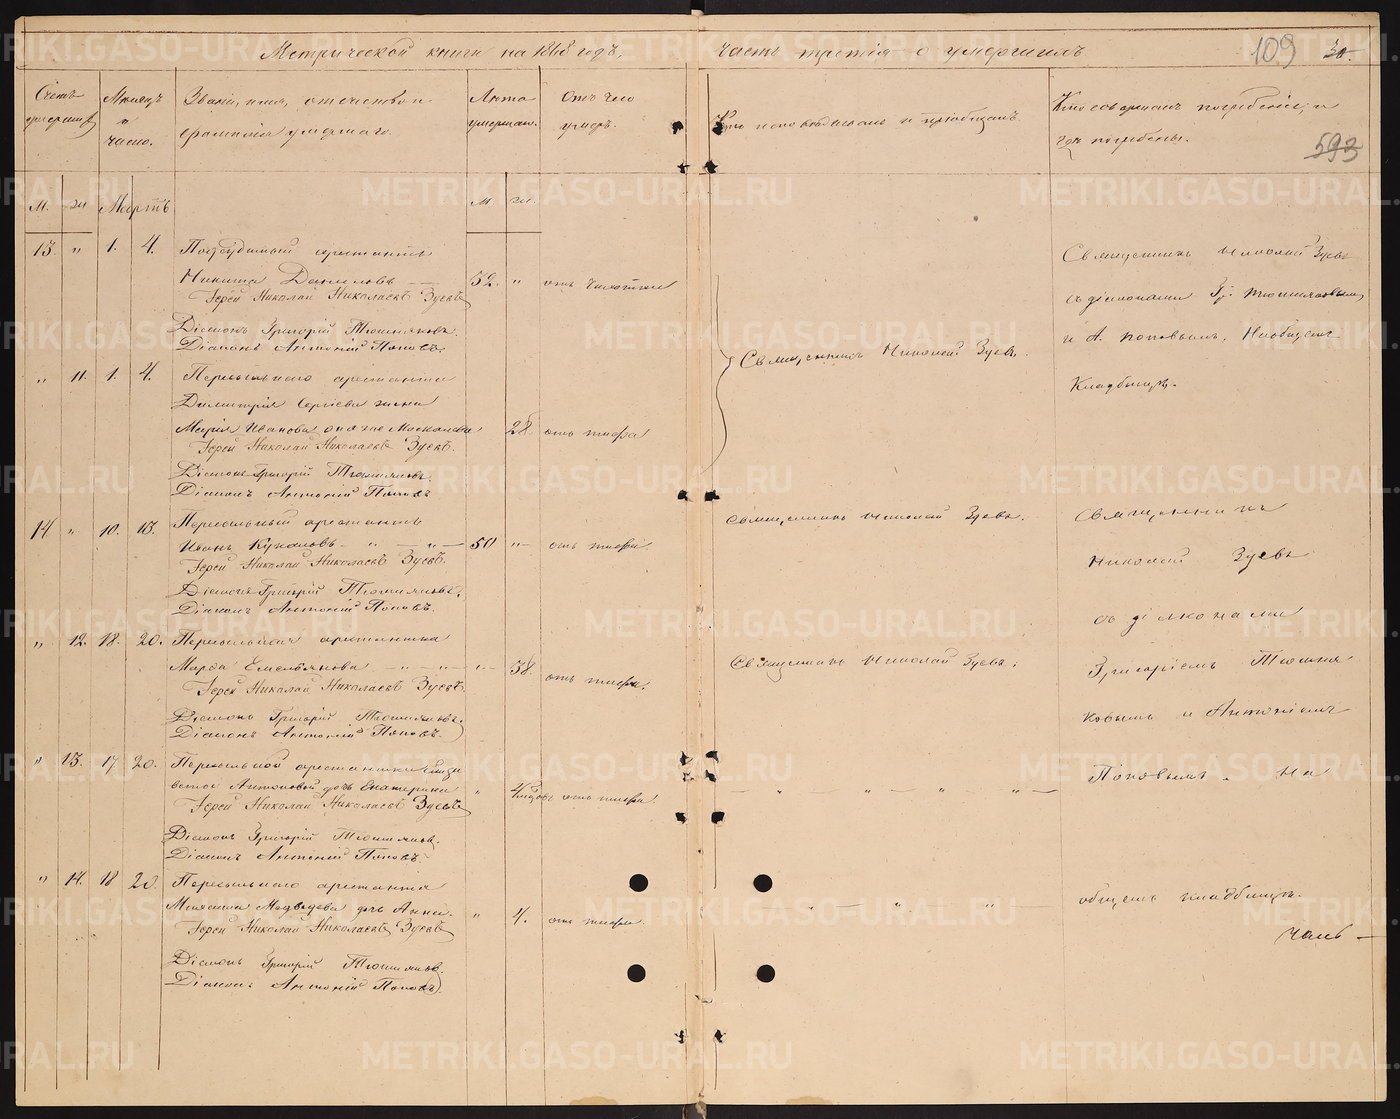 Метрической книги на 1868 годъ, часть третія о умершихъ
109
30.
593
Счетъ умершихъ
Мѣсяцъ и число.
Званіе, имя, отчество и фамилія умершаго.
Лѣта умершаго.
Отъ чего умеръ.
Кто исповѣдывалъ и пріобщалъ.
Кто совершалъ погребеніе и гдѣ погребены.
М. Мартъ М
13. " 1. 4. Подсудимый арестантъ
Никита Даниловъ 52. " отъ чахотки
Іерей Николай Николаевъ Зуевъ
Діаконъ Григорій Тюшняковъ.
Діаконъ Антоній Поповъ.
Священникъ Николай Зуевъ.
Священникъ Николай Зуевъ
съ діаконами Гр. Тюшняковымъ
и А. Поповымъ. На общемъ
Кладбищѣ.
" 11. 1. 4. Пересыльнаго арестанта
Димитрія Сергѣева жена
Марія Иванова, она же Москалева 28. отъ тифа
Іерей Николай Николаевъ Зуевъ.
Діаконъ Григорій Тюшняковъ.
Діаконъ Антоній Поповъ
14 " 10. 13. Пересыльный арестантъ
Иванъ Кукановъ - " - " - 50 " отъ тифа.
Іерей Николай Николаевъ Зуевъ.
Діаконъ Григорій Тюшняковъ.
Діаконъ Антоній Поповъ.
Священникъ Николай Зуевъ.
Священникъ
Николай Зуевъ
съ діаконами
Григоріемъ Тюшня-
ковымъ и Антоніемъ
Поповымъ. На
общемъ кладбищѣ.
" 12. 18. 20. Пересыльная арестантка
Марѳа Емельянова - " - " - 38. отъ тифа.
Іерей Николай Николаевъ Зуевъ
Діаконъ Григорій Тюшняковъ.
Діаконъ Антоній Поповъ.
Священникъ Николай Зуевъ.
" 13. 17. 20. Пересыльной арестантки Елиза
ветои Антоновой дочь Екатерина " отъ тифа.
Іерей Николай Николаевъ Зуевъ
Діаконъ Григорій Тюшняковъ.
Діаконъ Антоній Поповъ.
" 14. 18 20. Пересыльнаго арестанта
Медведева дочь Анна. " 4. отъ тифа.
Іерей Николай Николаевъ Зуевъ
Діаконъ Григорій Тюшняковъ.
Діаконъ Антоній Поповъ.
METRIKI.GASO-URAL.RU